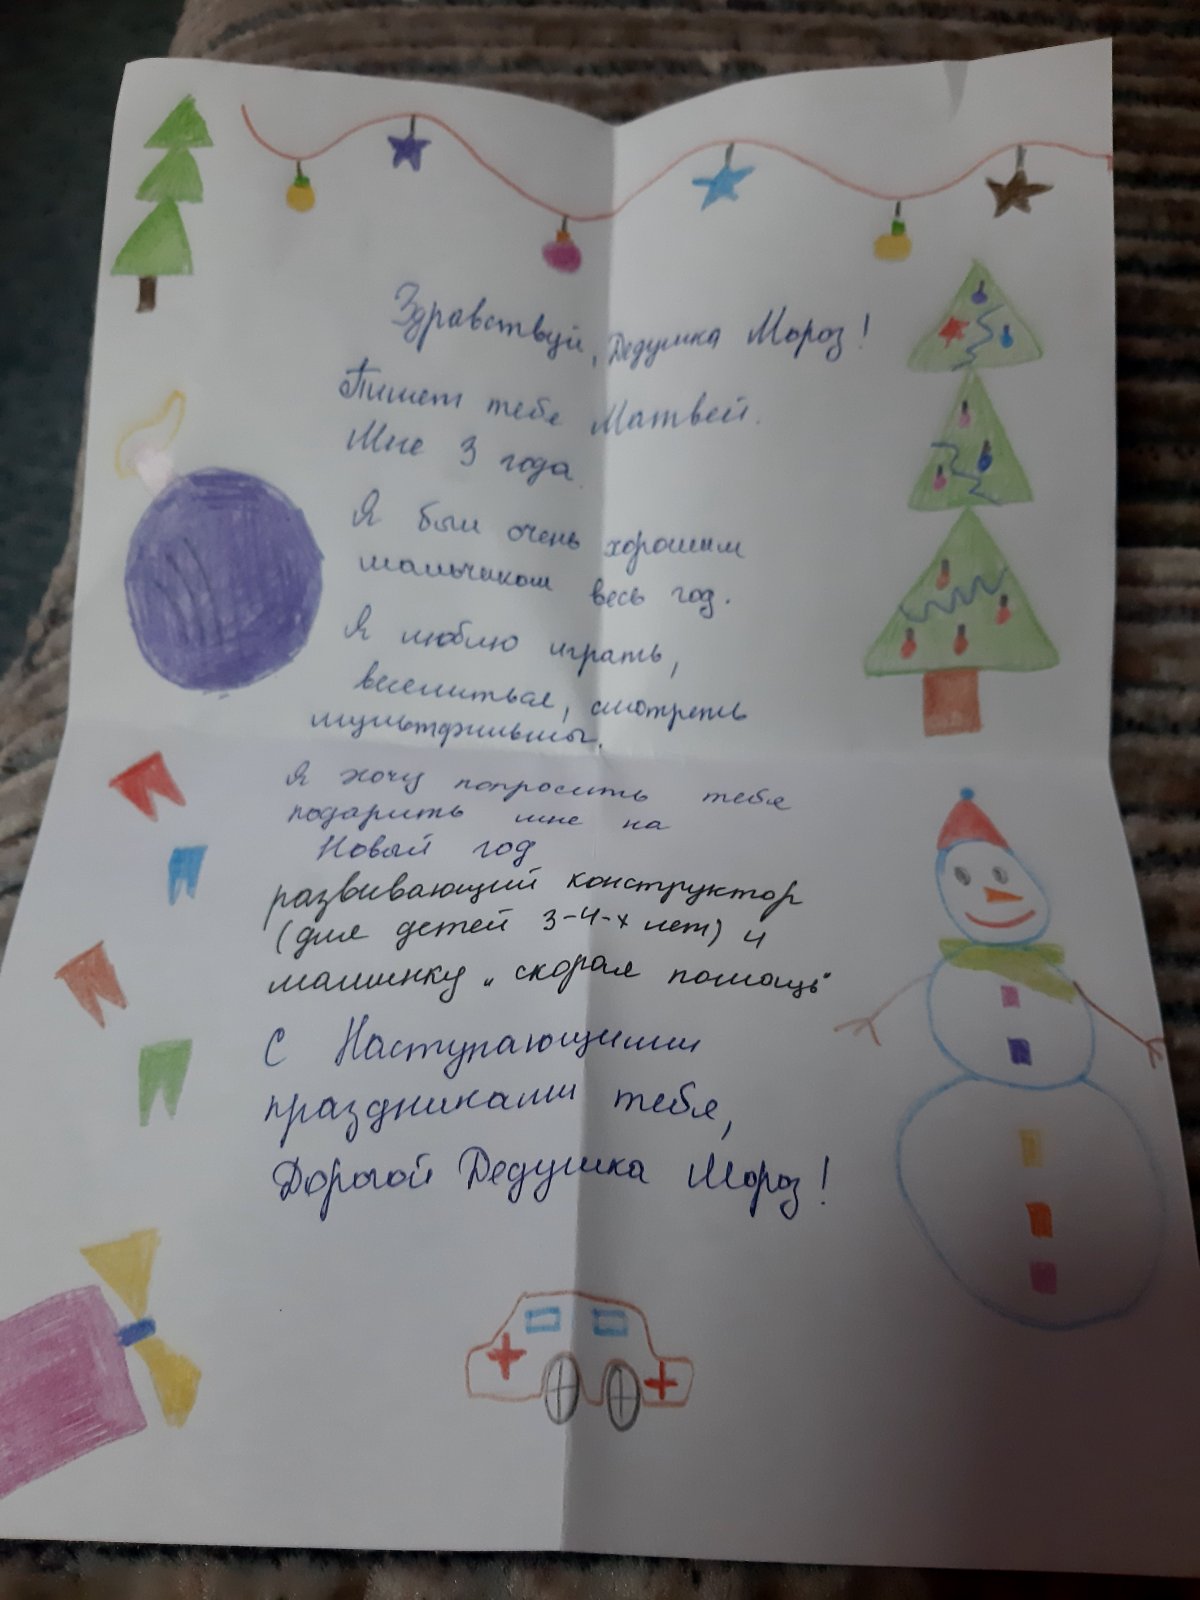 Здравствуй, Дедушка Мороз!
Пишет тебе Матвей.
Мне 3 года.
Я был очень хорошим
мальчиком весь год.
Я люблю играть,
веселиться, смотреть
мультфильмы.
Я хочу попросить тебя
подарить мне на
Новый год
развивающий конструктор
(для детей 3-4-х лет) и
машинку "скорая помощь"
С Наступающими
праздниками тебя,
Дорогой Дедушка Мороз!